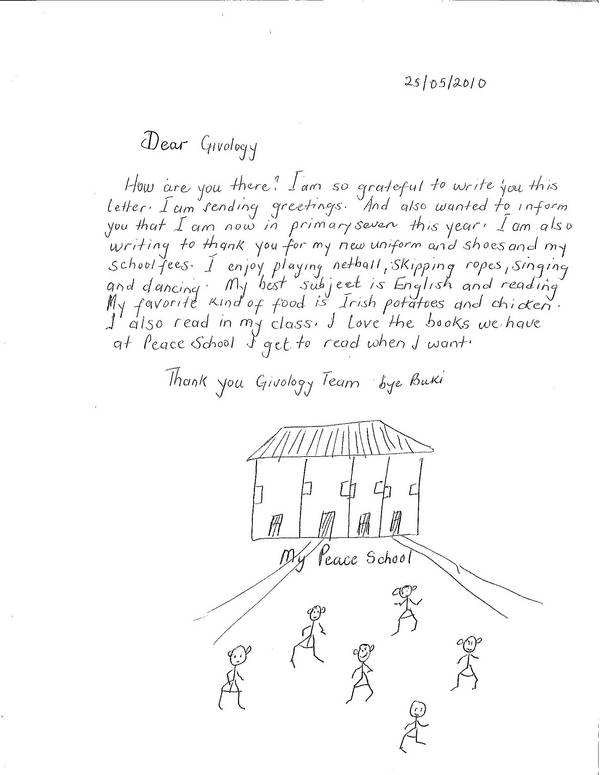 25/05/2010
Dear Givology
How are you there? I am so grateful to write you this
letter. I am sending greetings. And also wanted to inform
you that I am now in primary seven this year. I am also
writing to thank you for my new uniform and shoes and my
school fees. I enjoy playing netball, skipping ropes, singing
and dancing. My best subject is English and reading
My favorite kind of food is Irish potatoes and chicken.
I also read in my class. I love the books we have
at Peace School I get to read when I want.
Thank you Givology Team bye Buki
My Peace School